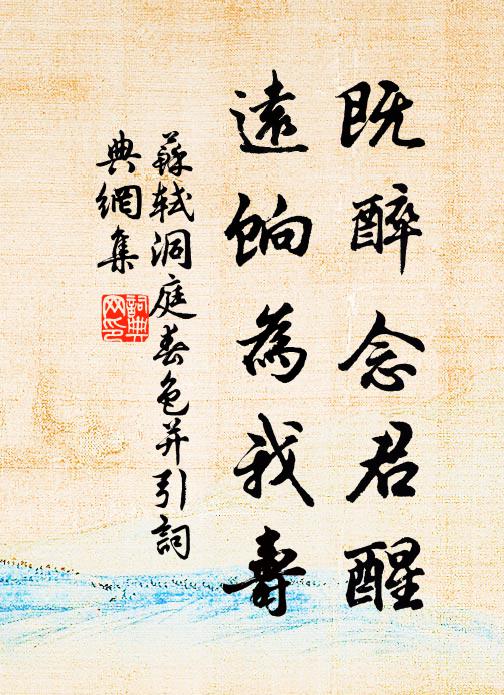 既醉念君醒
遠餉為我壽
蘇軾洞庭春色并引詞
典網集
詞典網印